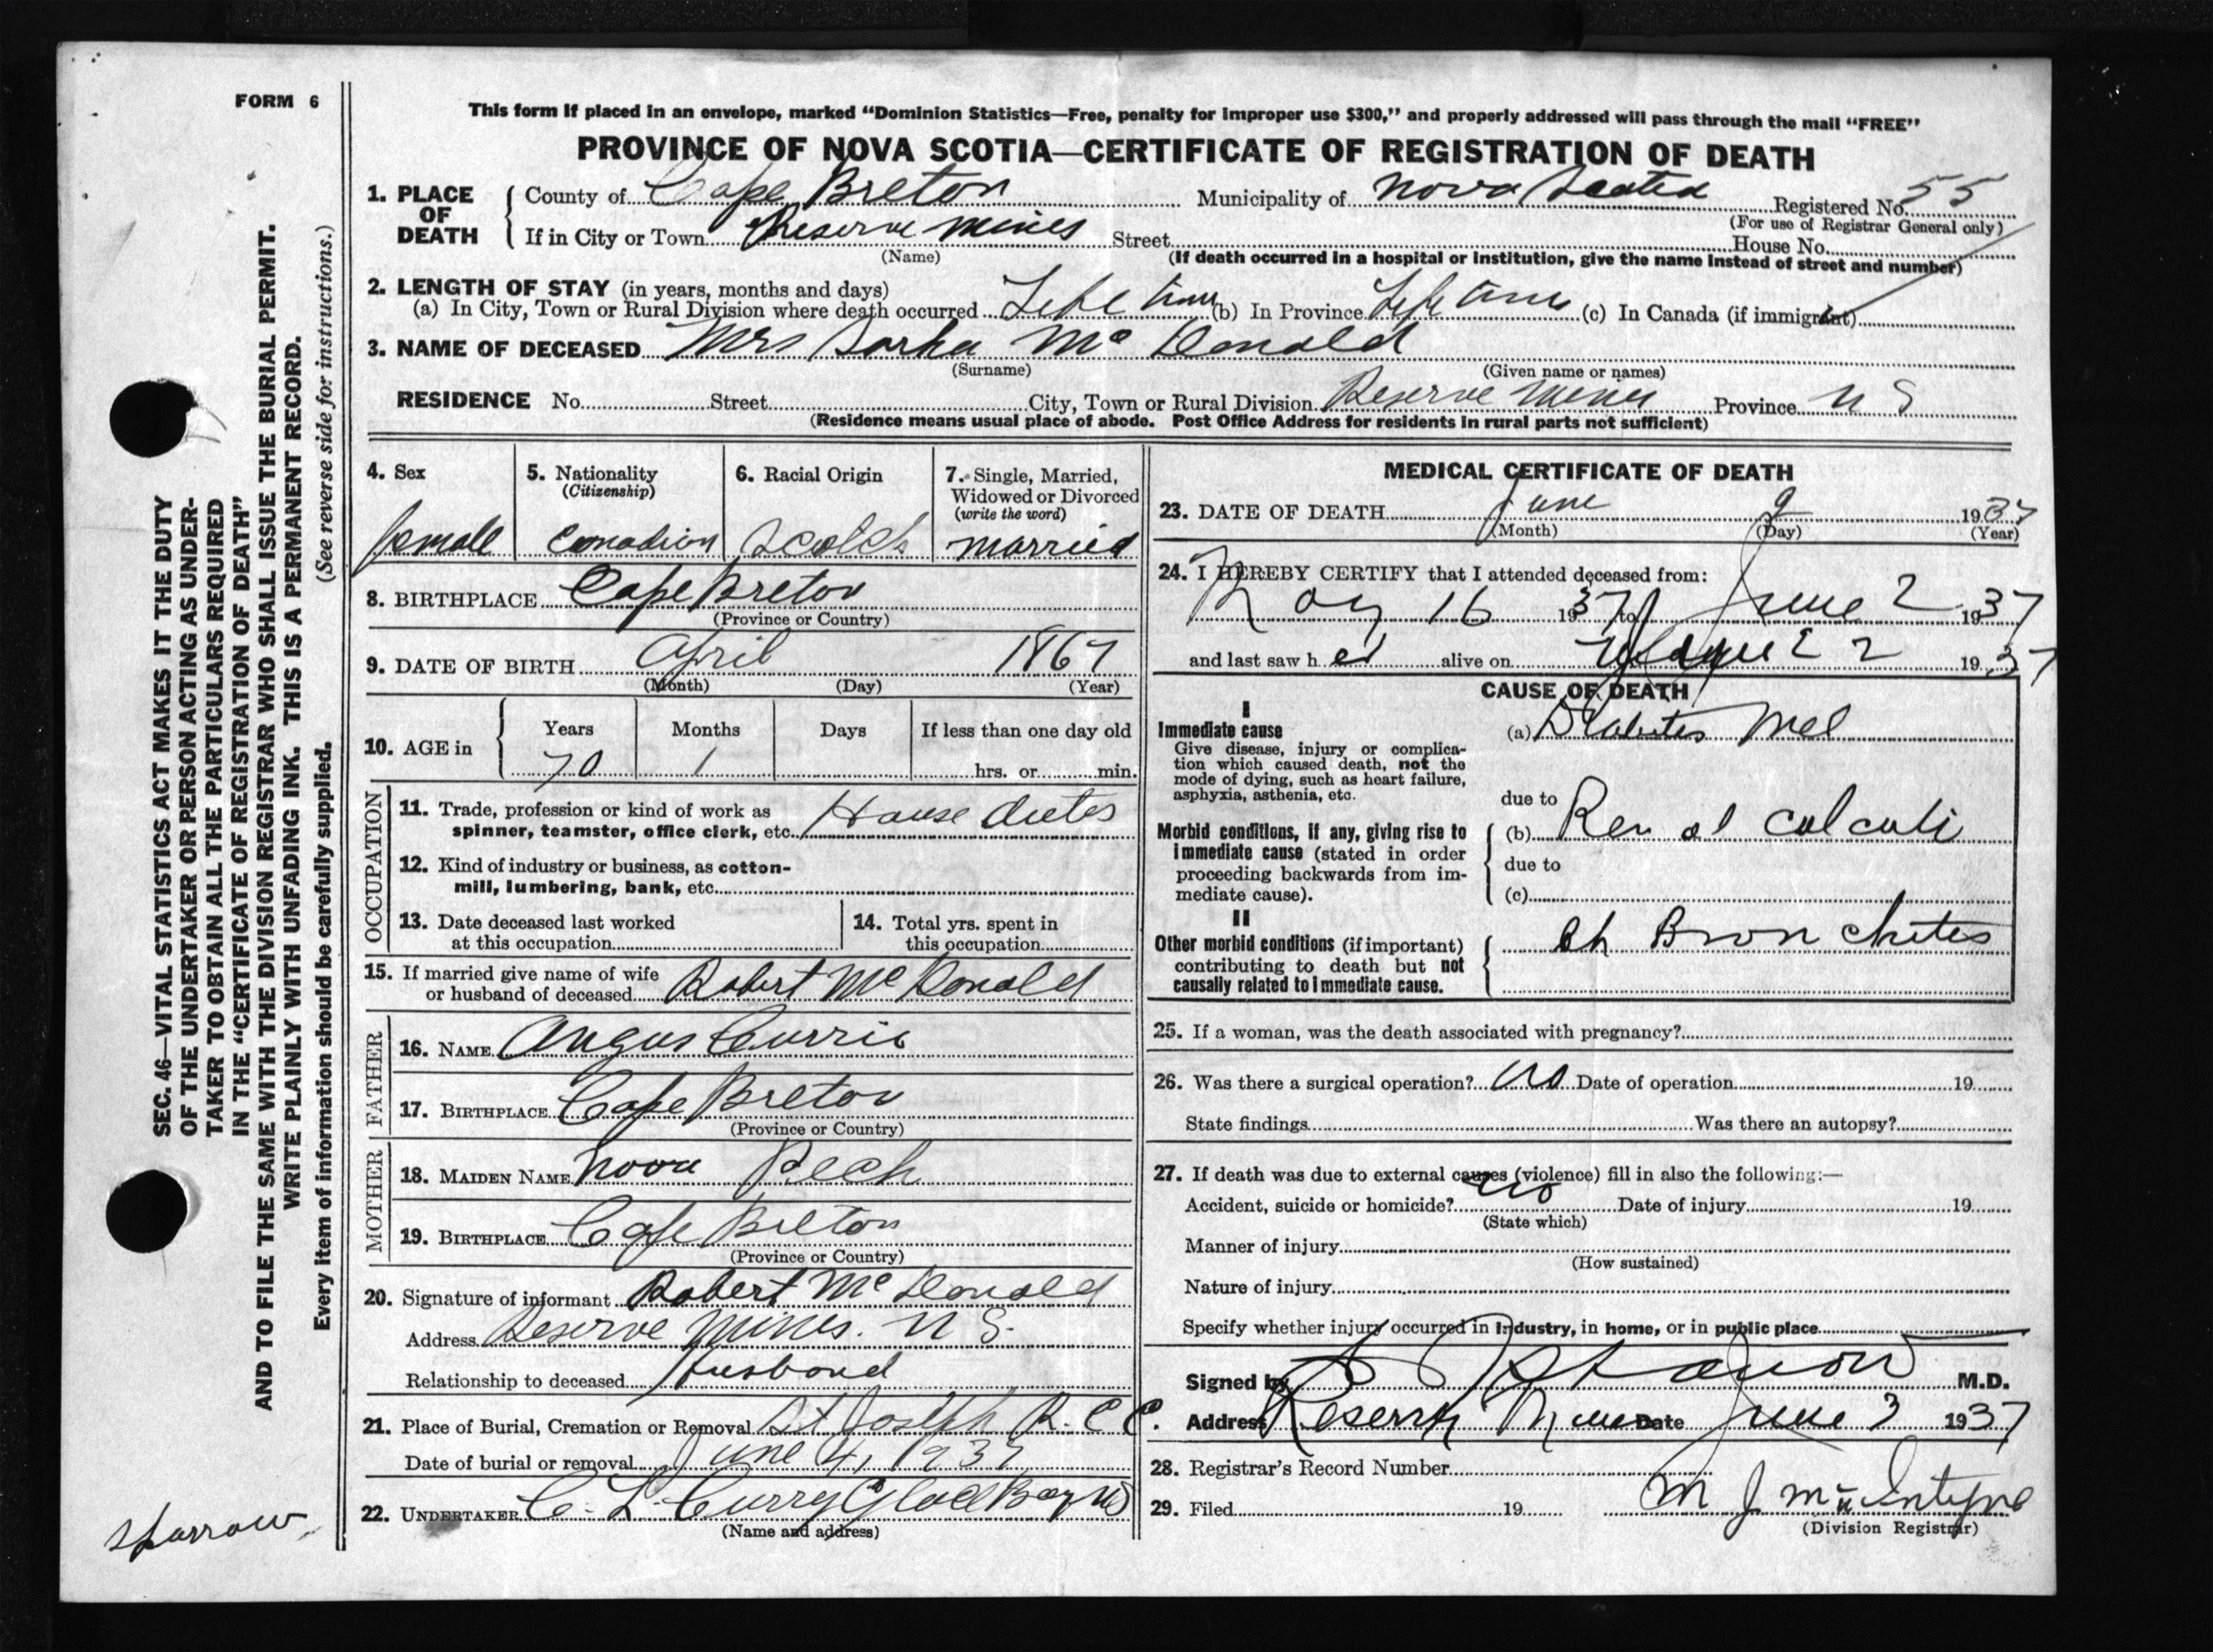 FORM 6
This form if placed in an envelope, marked "Dominion Statistics—Free, penalty for improper use $300," and properly addressed will pass through the mail "FREE"
PROVINCE OF NOVA SCOTIA—CERTIFICATE OF REGISTRATION OF DEATH
1. PLACE OF DEATH County of Cape Breton Municipality of Nova Scotia Registered No. 55
(For use of Registrar General only)
If in City or Town Reserve Mines Street House No.
(Name) (If death occurred in a hospital or institution, give the name instead of street and number)
2. LENGTH OF STAY (in years, months and days)
(a) In City, Town or Rural Division where death occurred Life time (b) In Province Life time (c) In Canada (if immigrant)
3. NAME OF DECEASED Mrs Sarha Mc Donald
(Surname) (Given name or names)
RESIDENCE No. Street City, Town or Rural Division Reserve Mines Province N S
(Residence means usual place of abode. Post Office Address for residents in rural parts not sufficient)
4. Sex female
5. Nationality (Citizenship) Canadian
6. Racial Origin Scotch
7. Single, Married, Widowed or Divorced (write the word) married
8. BIRTHPLACE Cape Breton
(Province or Country)
9. DATE OF BIRTH April 1867
(Month) (Day) (Year)
10. AGE in Years Months Days If less than one day old
70 1 hrs. or min.
OCCUPATION
11. Trade, profession or kind of work as
spinner, teamster, office clerk, etc. House duties
12. Kind of industry or business, as cotton-
mill, lumbering, bank, etc.
13. Date deceased last worked
at this occupation
14. Total yrs. spent in
this occupation
15. If married give name of wife
or husband of deceased Robert Mc Donald
FATHER
16. NAME Angus Currie
17. BIRTHPLACE Cape Breton
(Province or Country)
MOTHER
18. MAIDEN NAME
19. BIRTHPLACE Cape Breton
(Province or Country)
20. Signature of informant Robert Mc Donald
Address Reserve Mines. N S.
Relationship to deceased Husband
21. Place of Burial, Cremation or Removal St Joseph R. C C.
Date of burial or removal June 4, 1937
22. UNDERTAKER C. L. Curry Glace Bay NS
(Name and address)
MEDICAL CERTIFICATE OF DEATH
23. DATE OF DEATH June 2 1937
(Month) (Day) (Year)
24. I HEREBY CERTIFY that I attended deceased from:
May 16 1937 to June 2 1937
and last saw h er alive on 2 1937
CAUSE OF DEATH
I
Immediate cause
Give disease, injury or complica-
tion which caused death, not the
mode of dying, such as heart failure,
asphyxia, asthenia, etc.
(a) Diabetes Mel
due to
Morbid conditions, if any, giving rise to
immediate cause (stated in order
proceeding backwards from im-
mediate cause).
(b) Renal calculi
due to
(c)
II
Other morbid conditions (if important)
contributing to death but not
causally related to immediate cause.
Ch Bronchites
25. If a woman, was the death associated with pregnancy?
26. Was there a surgical operation? no Date of operation 19
State findings Was there an autopsy?
27. If death was due to external causes (violence) fill in also the following:—
Accident, suicide or homicide? no Date of injury 19
(State which)
Manner of injury
(How sustained)
Nature of injury
Specify whether injury occurred in industry, in home, or in public place
Signed by M.D.
Address Reserve Mines Date June 3 1937
28. Registrar's Record Number
29. Filed 19 M J McIntyre
(Division Registrar)
SEC. 46—VITAL STATISTICS ACT MAKES IT THE DUTY
OF THE UNDERTAKER OR PERSON ACTING AS UNDER-
TAKER TO OBTAIN ALL THE PARTICULARS REQUIRED
IN THE "CERTIFICATE OF REGISTRATION OF DEATH"
AND TO FILE THE SAME WITH THE DIVISION REGISTRAR WHO SHALL ISSUE THE BURIAL PERMIT.
WRITE PLAINLY WITH UNFADING INK. THIS IS A PERMANENT RECORD.
Every item of information should be carefully supplied. (See reverse side for instructions.)
Sparrow